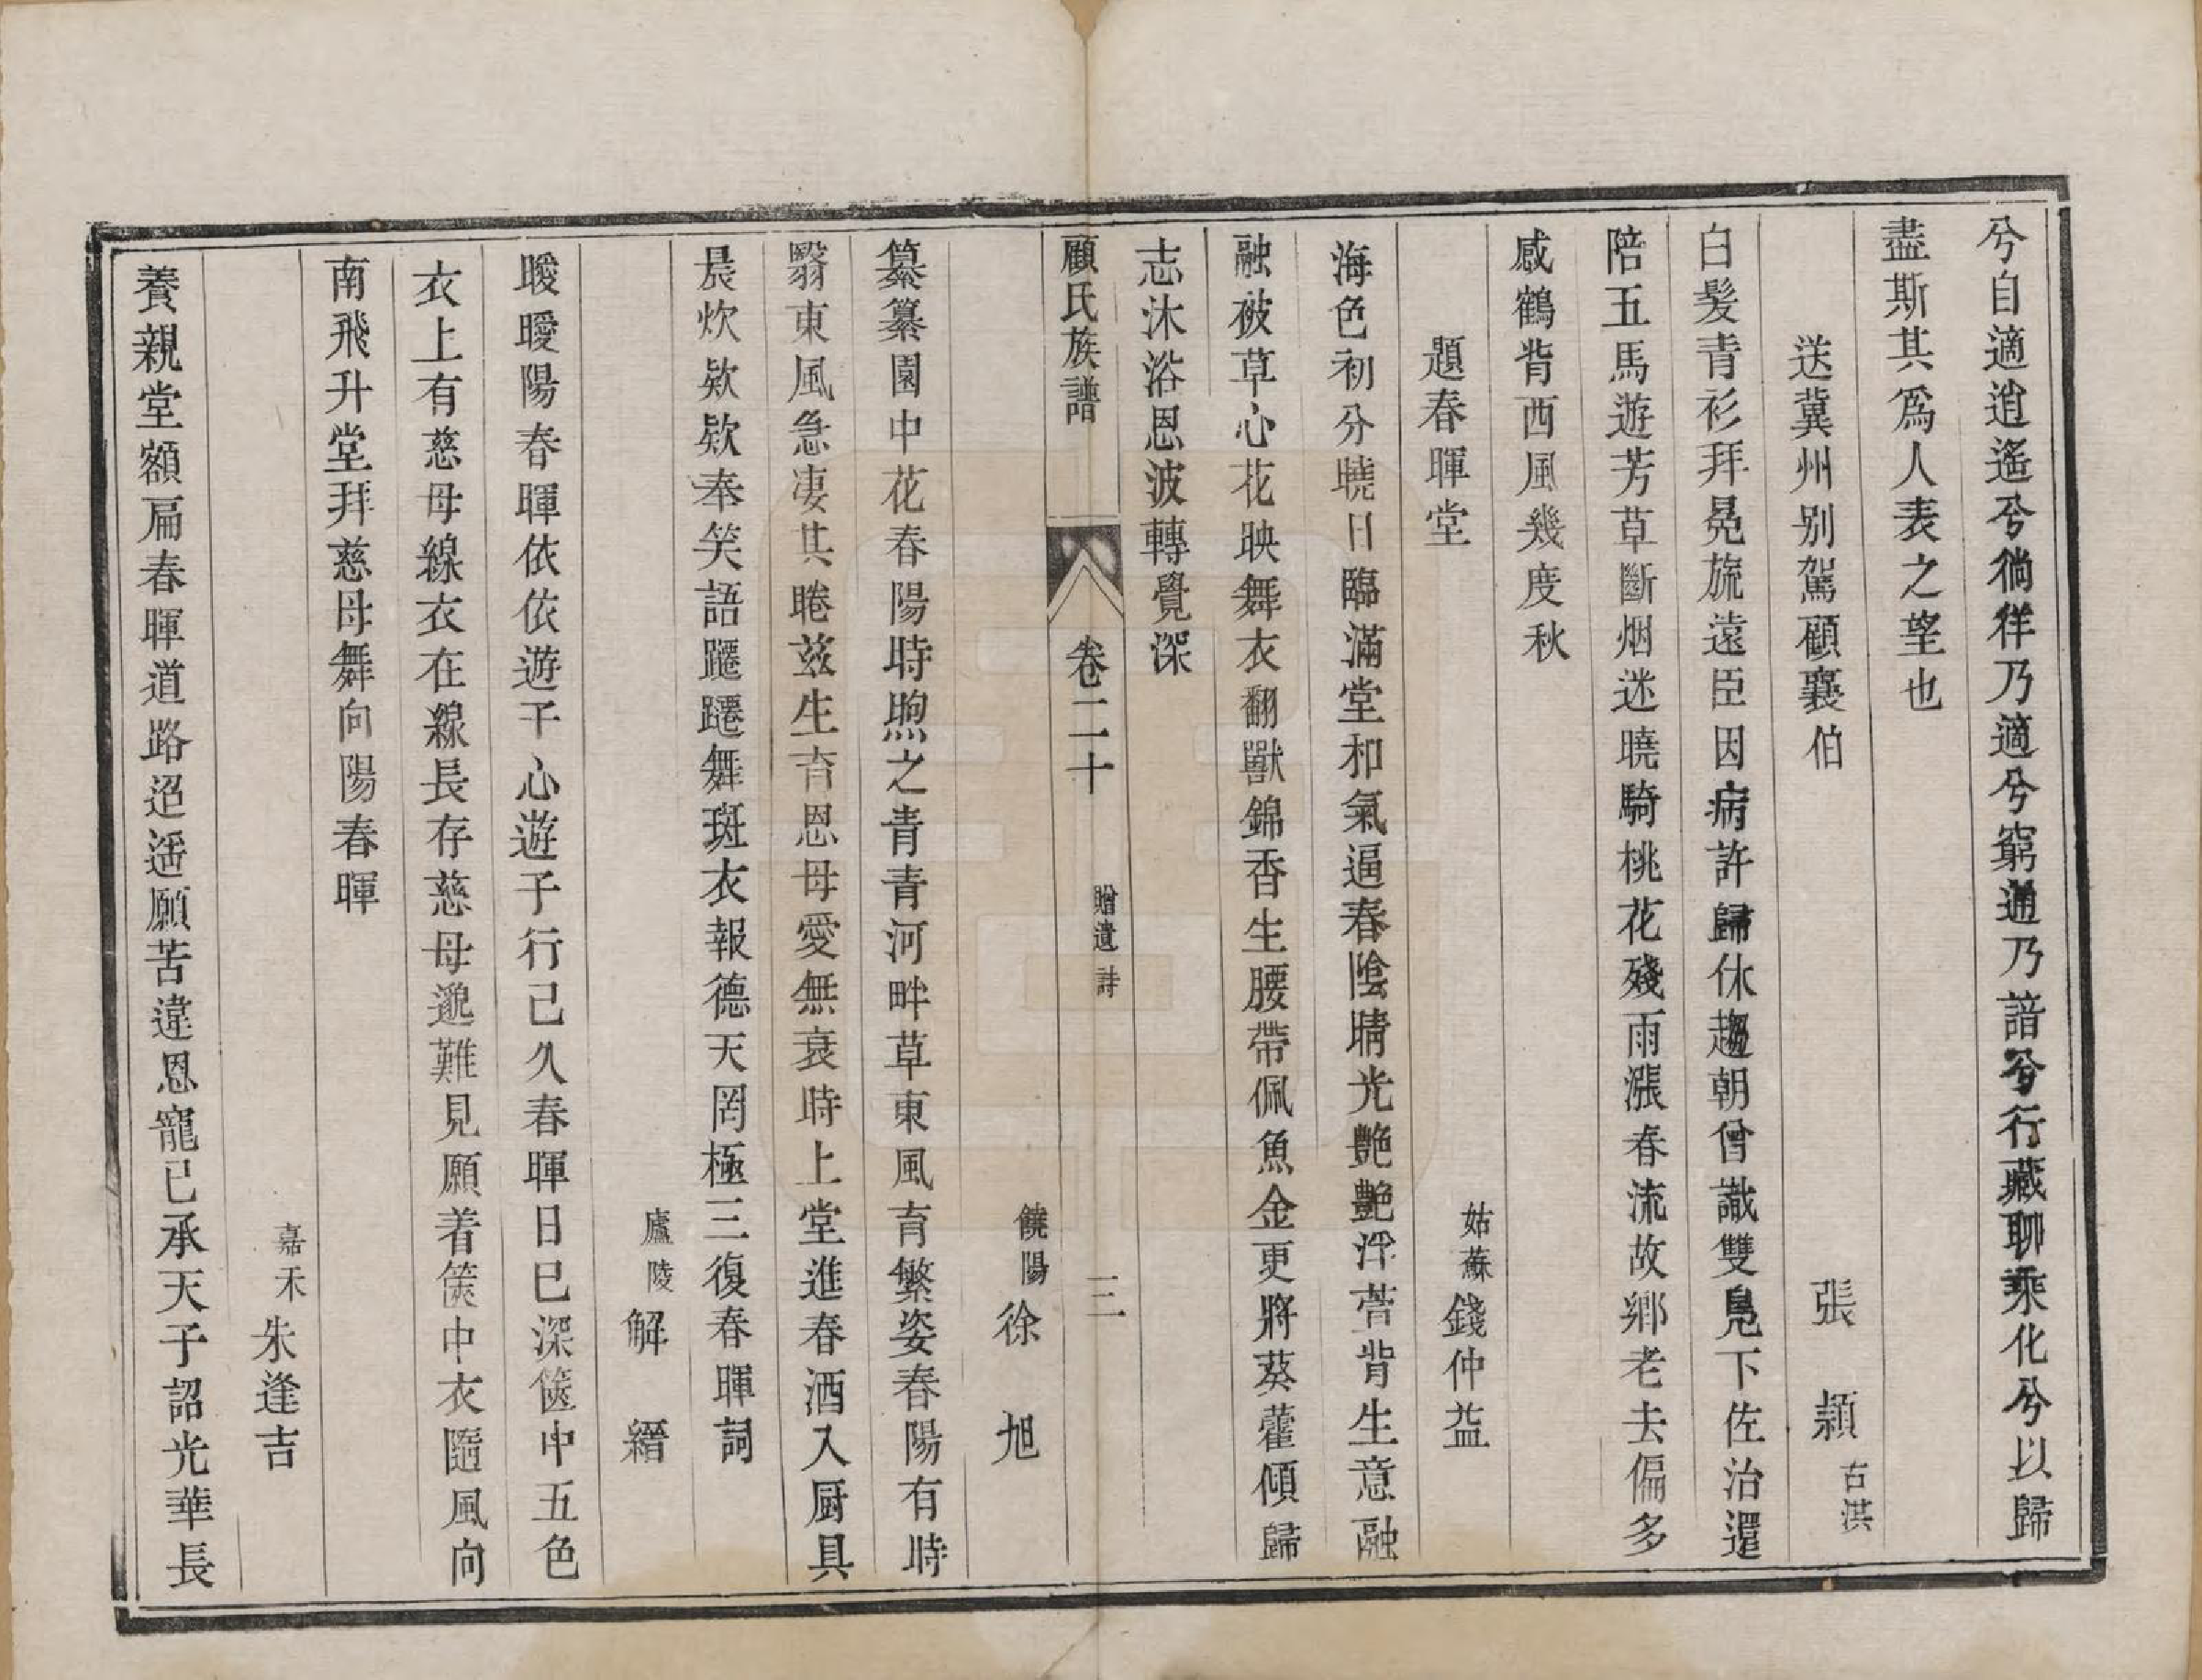 兮自適逍遙兮徜徉乃適兮窮通乃諳兮行藏聊乘化兮以歸
盡斯其爲人表之望也
送冀州别駕顧襄伯
張 頴 古淇
白髮青衫拜冕旒遠臣因病許歸休趨朝曾識雙鳬下佐治還
陪五馬遊芳草斷烟迷曉騎桃花殘雨漲春流故鄉老去偏多
感鶴背西風幾度秋
題春暉堂
姑蘇 錢仲益
海色初分曉日臨滿堂和氣逼春陰晴光艶艶浮萱背生意融
融被草心花映舞衣翻獸錦香生腰帶佩魚金更將葵藿傾歸
志沐浴恩波轉覺深
顧氏族譜
卷二十
贈遺詩
三
饒陽 徐 旭
纂纂園中花春陽時煦之青青河畔草東風育繁姿春陽有時
翳東風急凄其睠兹生育恩母愛無衰時上堂進春酒入厨具
晨炊欵欵奉笑語躚躚舞斑衣報德天罔極三復春暉詞
廬陵 解 縉
曖曖陽春暉依依遊子心遊子行已久春暉日已深篋中五色
衣上有慈母線衣在線長存慈母邈難見願着篋中衣隨風向
南飛升堂拜慈母舞向陽春暉
嘉禾 朱逢吉
養親堂額扁春暉道路迢遥願苦違恩寵已承天子詔光華長